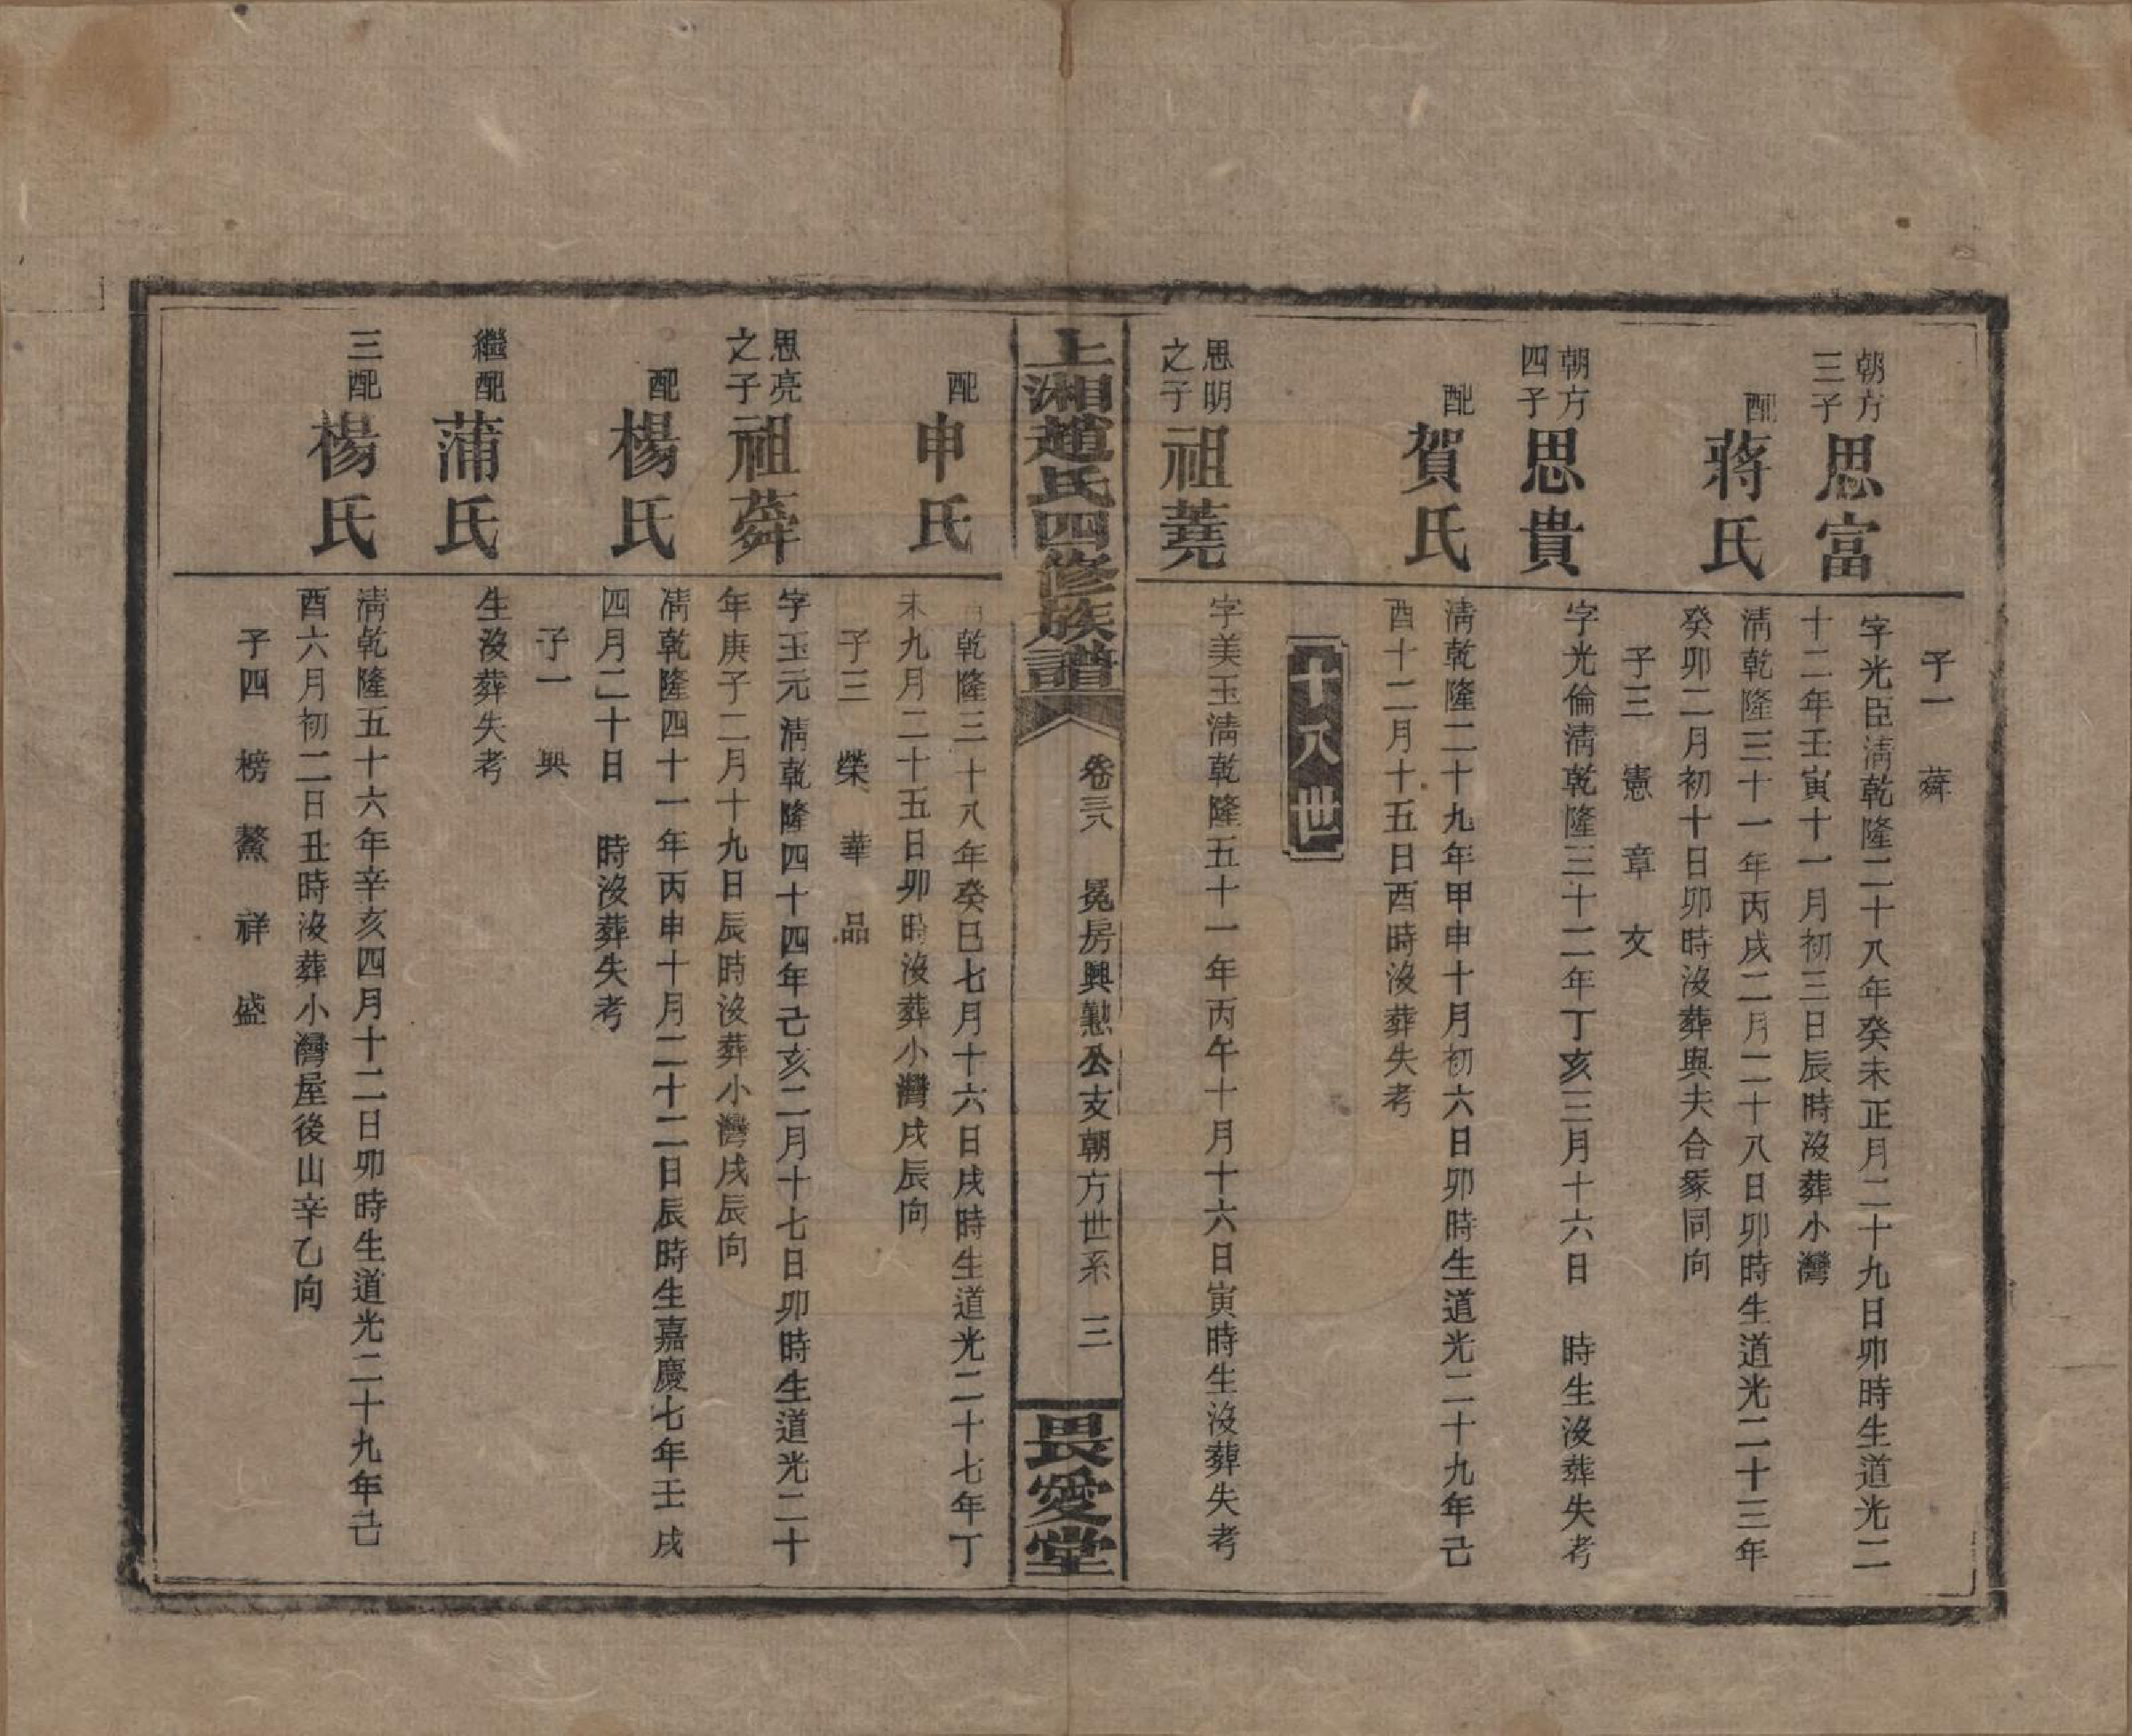 子一　蕣
朝方三子
思富
字光臣淸乾隆二十八年癸未正月二十九日卯時生道光二
十二年壬寅十一月初三日辰時沒葬小灣
配
蔣氏
淸乾隆三十一年丙戌二月二十八日卯時生道光二十三年
癸卯二月初十日卯時沒葬與夫合冢同向
子三　憲　章　文
朝方四子
思貴
字光倫淸乾隆三十二年丁亥三月十六日　時生沒葬失考
配
賀氏
淸乾隆二十九年甲申十月初六日卯時生道光二十九年己
酉十二月十五日酉時沒葬失考
十八世
思明之子
祖蕘
字美玉淸乾隆五十一年丙午十月十六日寅時生沒葬失考
上湘趙氏四修族譜
卷三八　冕房興懃公支朝方世系　三
畏愛堂
配
申氏
淸乾隆三十八年癸巳七月十六日戌時生道光二十七年丁
未九月二十五日卯時沒葬小灣戌辰向
子三　榮　華　品
思亮之子
祖蕣
字玉元淸乾隆四十四年己亥二月十七日卯時生道光二十
年庚子二月十九日辰時沒葬小灣戌辰向
配
楊氏
淸乾隆四十一年丙申十月二十二日辰時生嘉慶七年壬戌
四月二十日　時沒葬失考
子一　興
繼配
蒲氏
生沒葬失考
三配
楊氏
淸乾隆五十六年辛亥四月十二日卯時生道光二十九年己
酉六月初二日丑時沒葬小灣屋後山辛乙向
子四　榜　鰲　祥　盛